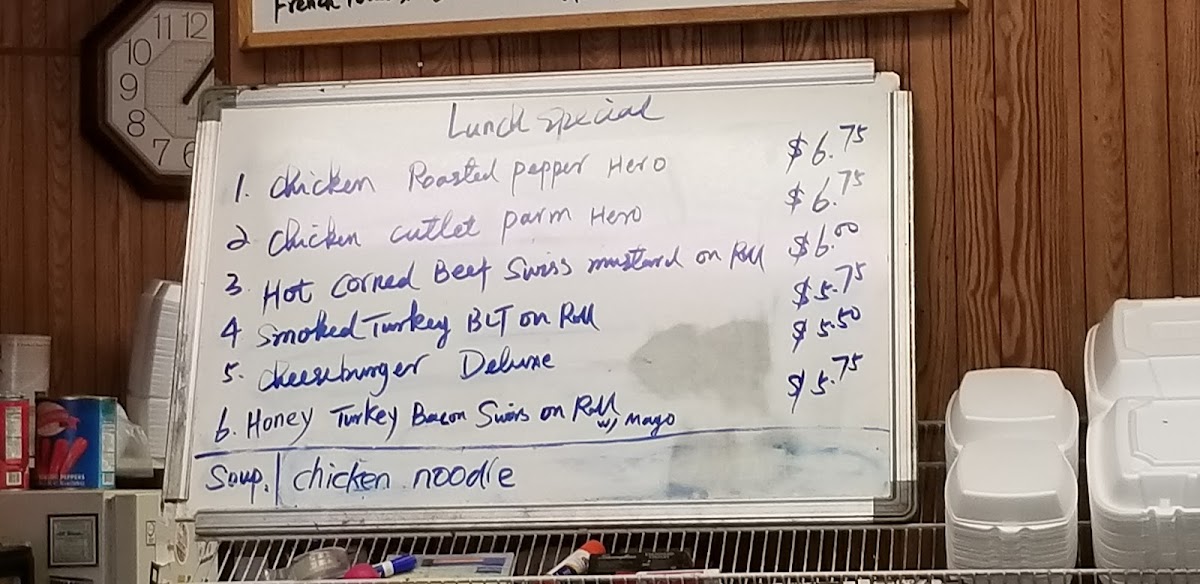 French
11 12
10
9
8
7 6
Lunch special
1. Chicken Roasted pepper Hero $6.75
2 Chicken cutlet parm Hero $6.75
3 Hot Corned Beef Swiss mustard on Roll $6.00
4 Smoked Turkey BLT on Roll $5.75
5. Cheeseburger Deluxe $5.50
6. Honey Turkey Bacon Swiss on Roll w/ mayo $5.75
Soup. chicken noodle
PEPPERS